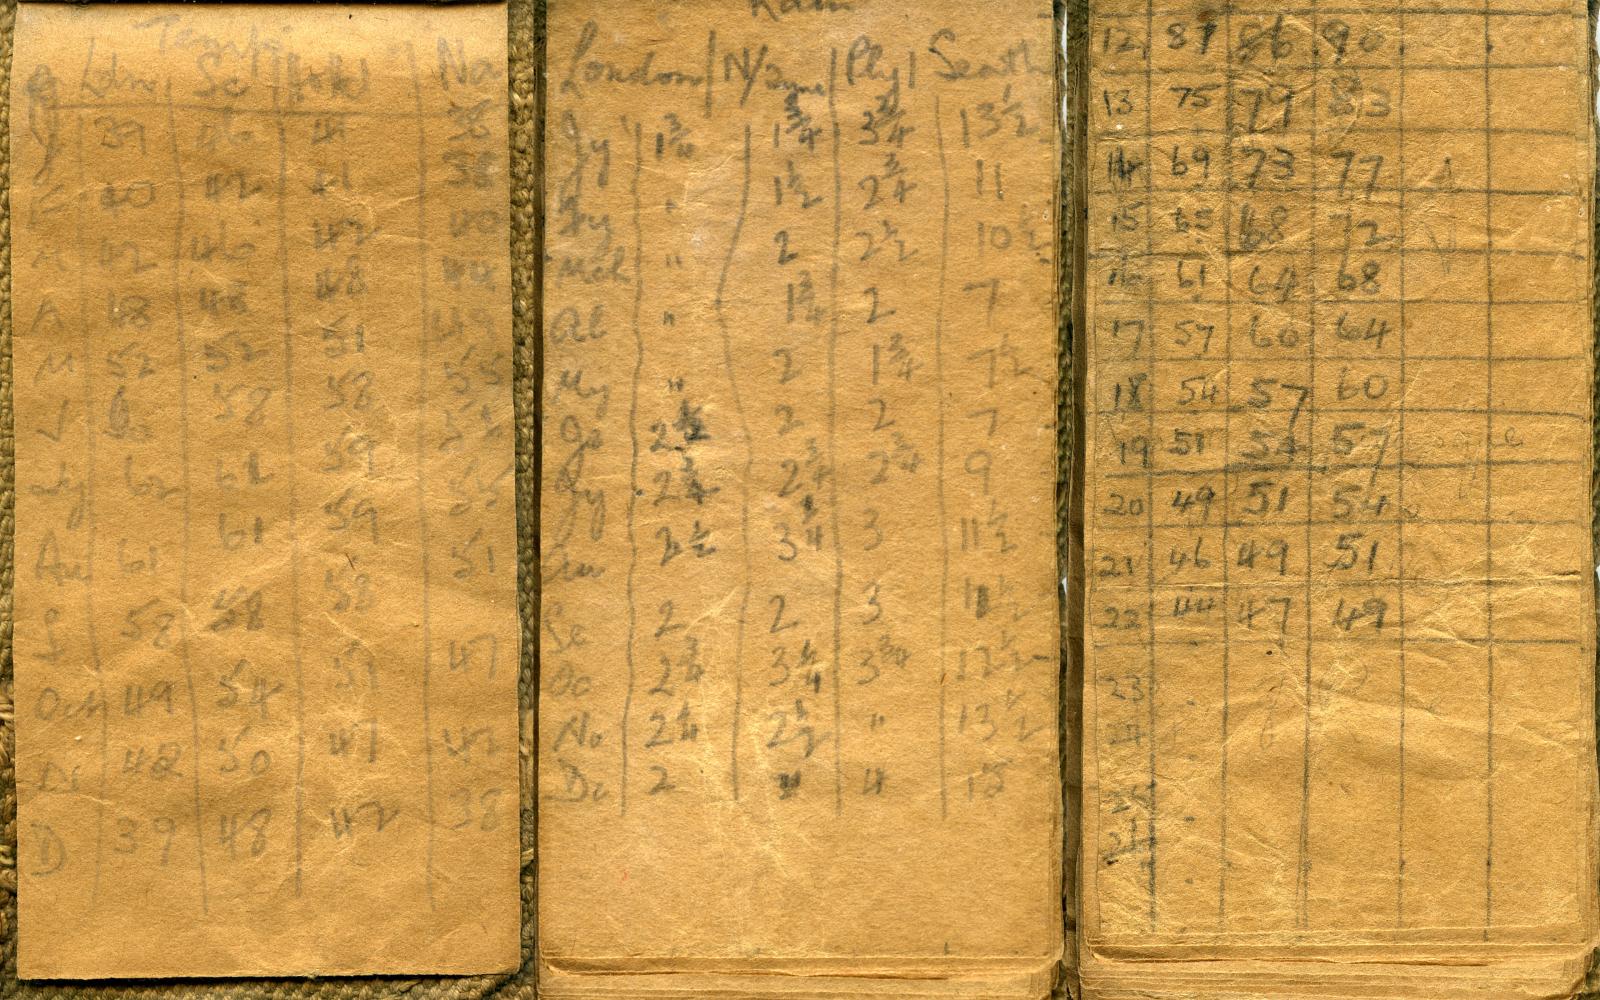 Temp
Ldn Se Na
J 39 46 41 38
F 40 42 41 38
M 42 46 42 40
A 48 48 48 44
M 52 52 51 49
J 58 58 55
Jy 62 62 59
Au 61 61 59 55
S 58 58 58 51
Oct 49 54 51 47
42 50 47 42
D 39 48 42 38
Rain
London Ply Seath
Jy 1¾ 1¾ 3¾ 13½
Fy " 1½ 2¾ 11
Mch " 2 2½ 10½
Al " 1¾ 2 7
My " 2 1¾ 7½
2½ 2 2 7
Jy 2¾ 2¾ 2¾ 9
Au 3¼ 3 11½
Se 2 2 3
Oc 2¾ 3¼ 3¾ 12½
No 2¼ 2½ " 13½
De 2 " 4 15
12 81 86 90
13 75 79 83
14 69 73 77
15 65 68 72
16 61 64 68
17 57 60 64
18 54 57 60
19 51 54 57
20 49 51 54
21 46 49 51
22 44 47 49
23
24
25